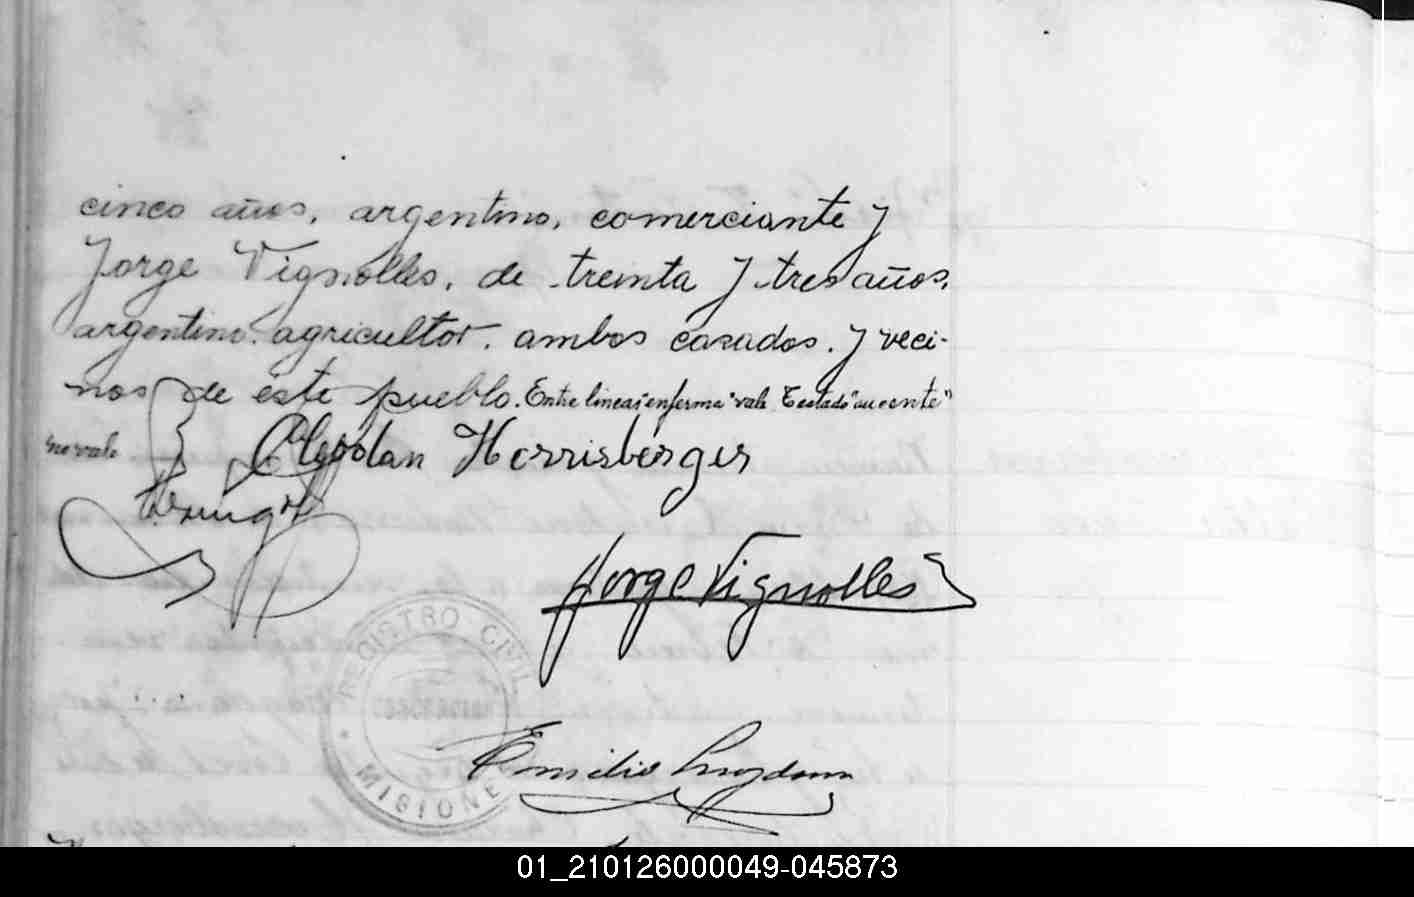 cinco años, argentino, comerciante y
Jorge Vignolles, de treinta y tres años,
argentino, agricultor, ambos casados, y veci-
nos de este pueblo. Entre lineas "enferma" vale Testado "ausente"
no vale
Horrisberger
Jorge Vignolles
REGISTRO CIVIL
MISIONES
Emilio
01_210126000049-045873